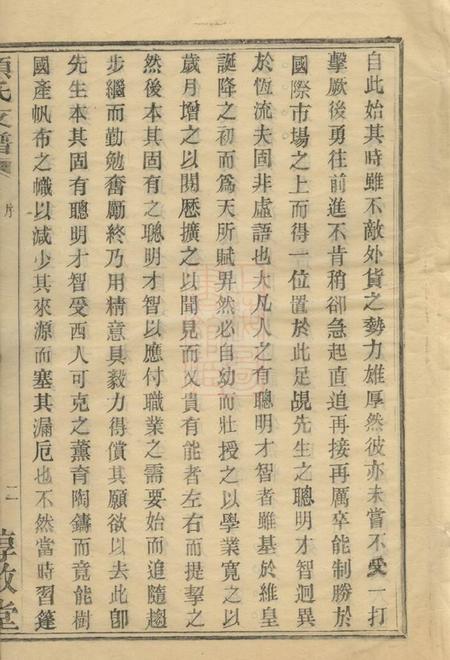 自此始其時雖不敵外貨之勢力雄厚然彼亦未嘗不受一打
擊厥後勇往前進不肯稍卻急起直追再接再厲卒能制勝於
國際市場之上而得一位置於此足覘先生之聰明才智迥異
於恆流夫固非虛語也大凡人之有聰明才智者雖基於維皇
誕降之初而為天所賦畀然必自幼而壯授之以學業寬之以
歲月增之以閱歷擴之以聞見而又貴有能者左右而提挈之
然後本其固有之聰明才智以應付職業之需要始而追隨趨
步繼而勤勉奮勵終乃用精意具毅力得償其願欲以去此卽
先生本其固有聰明才智受西人可克之薰育陶鑄而竟能樹
國產帆布之幟以減少其來源而塞其漏卮也不然當時習篷
氏支譜
序
二
敦堂